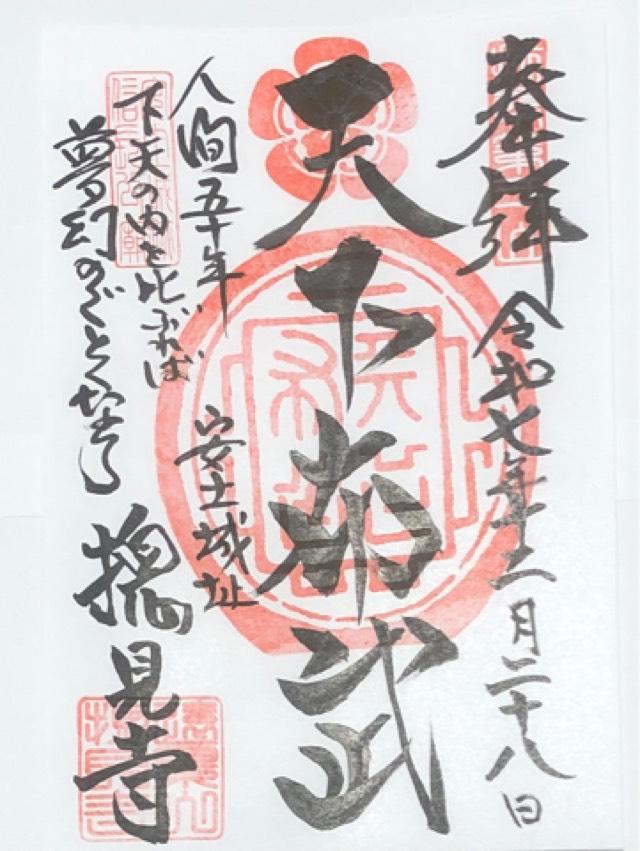 奉拝
令和七年十二月二十八日
天下布武
人間五十年
下天の内を比ぶれば
夢幻のごとくなり
安土城址
摠見寺